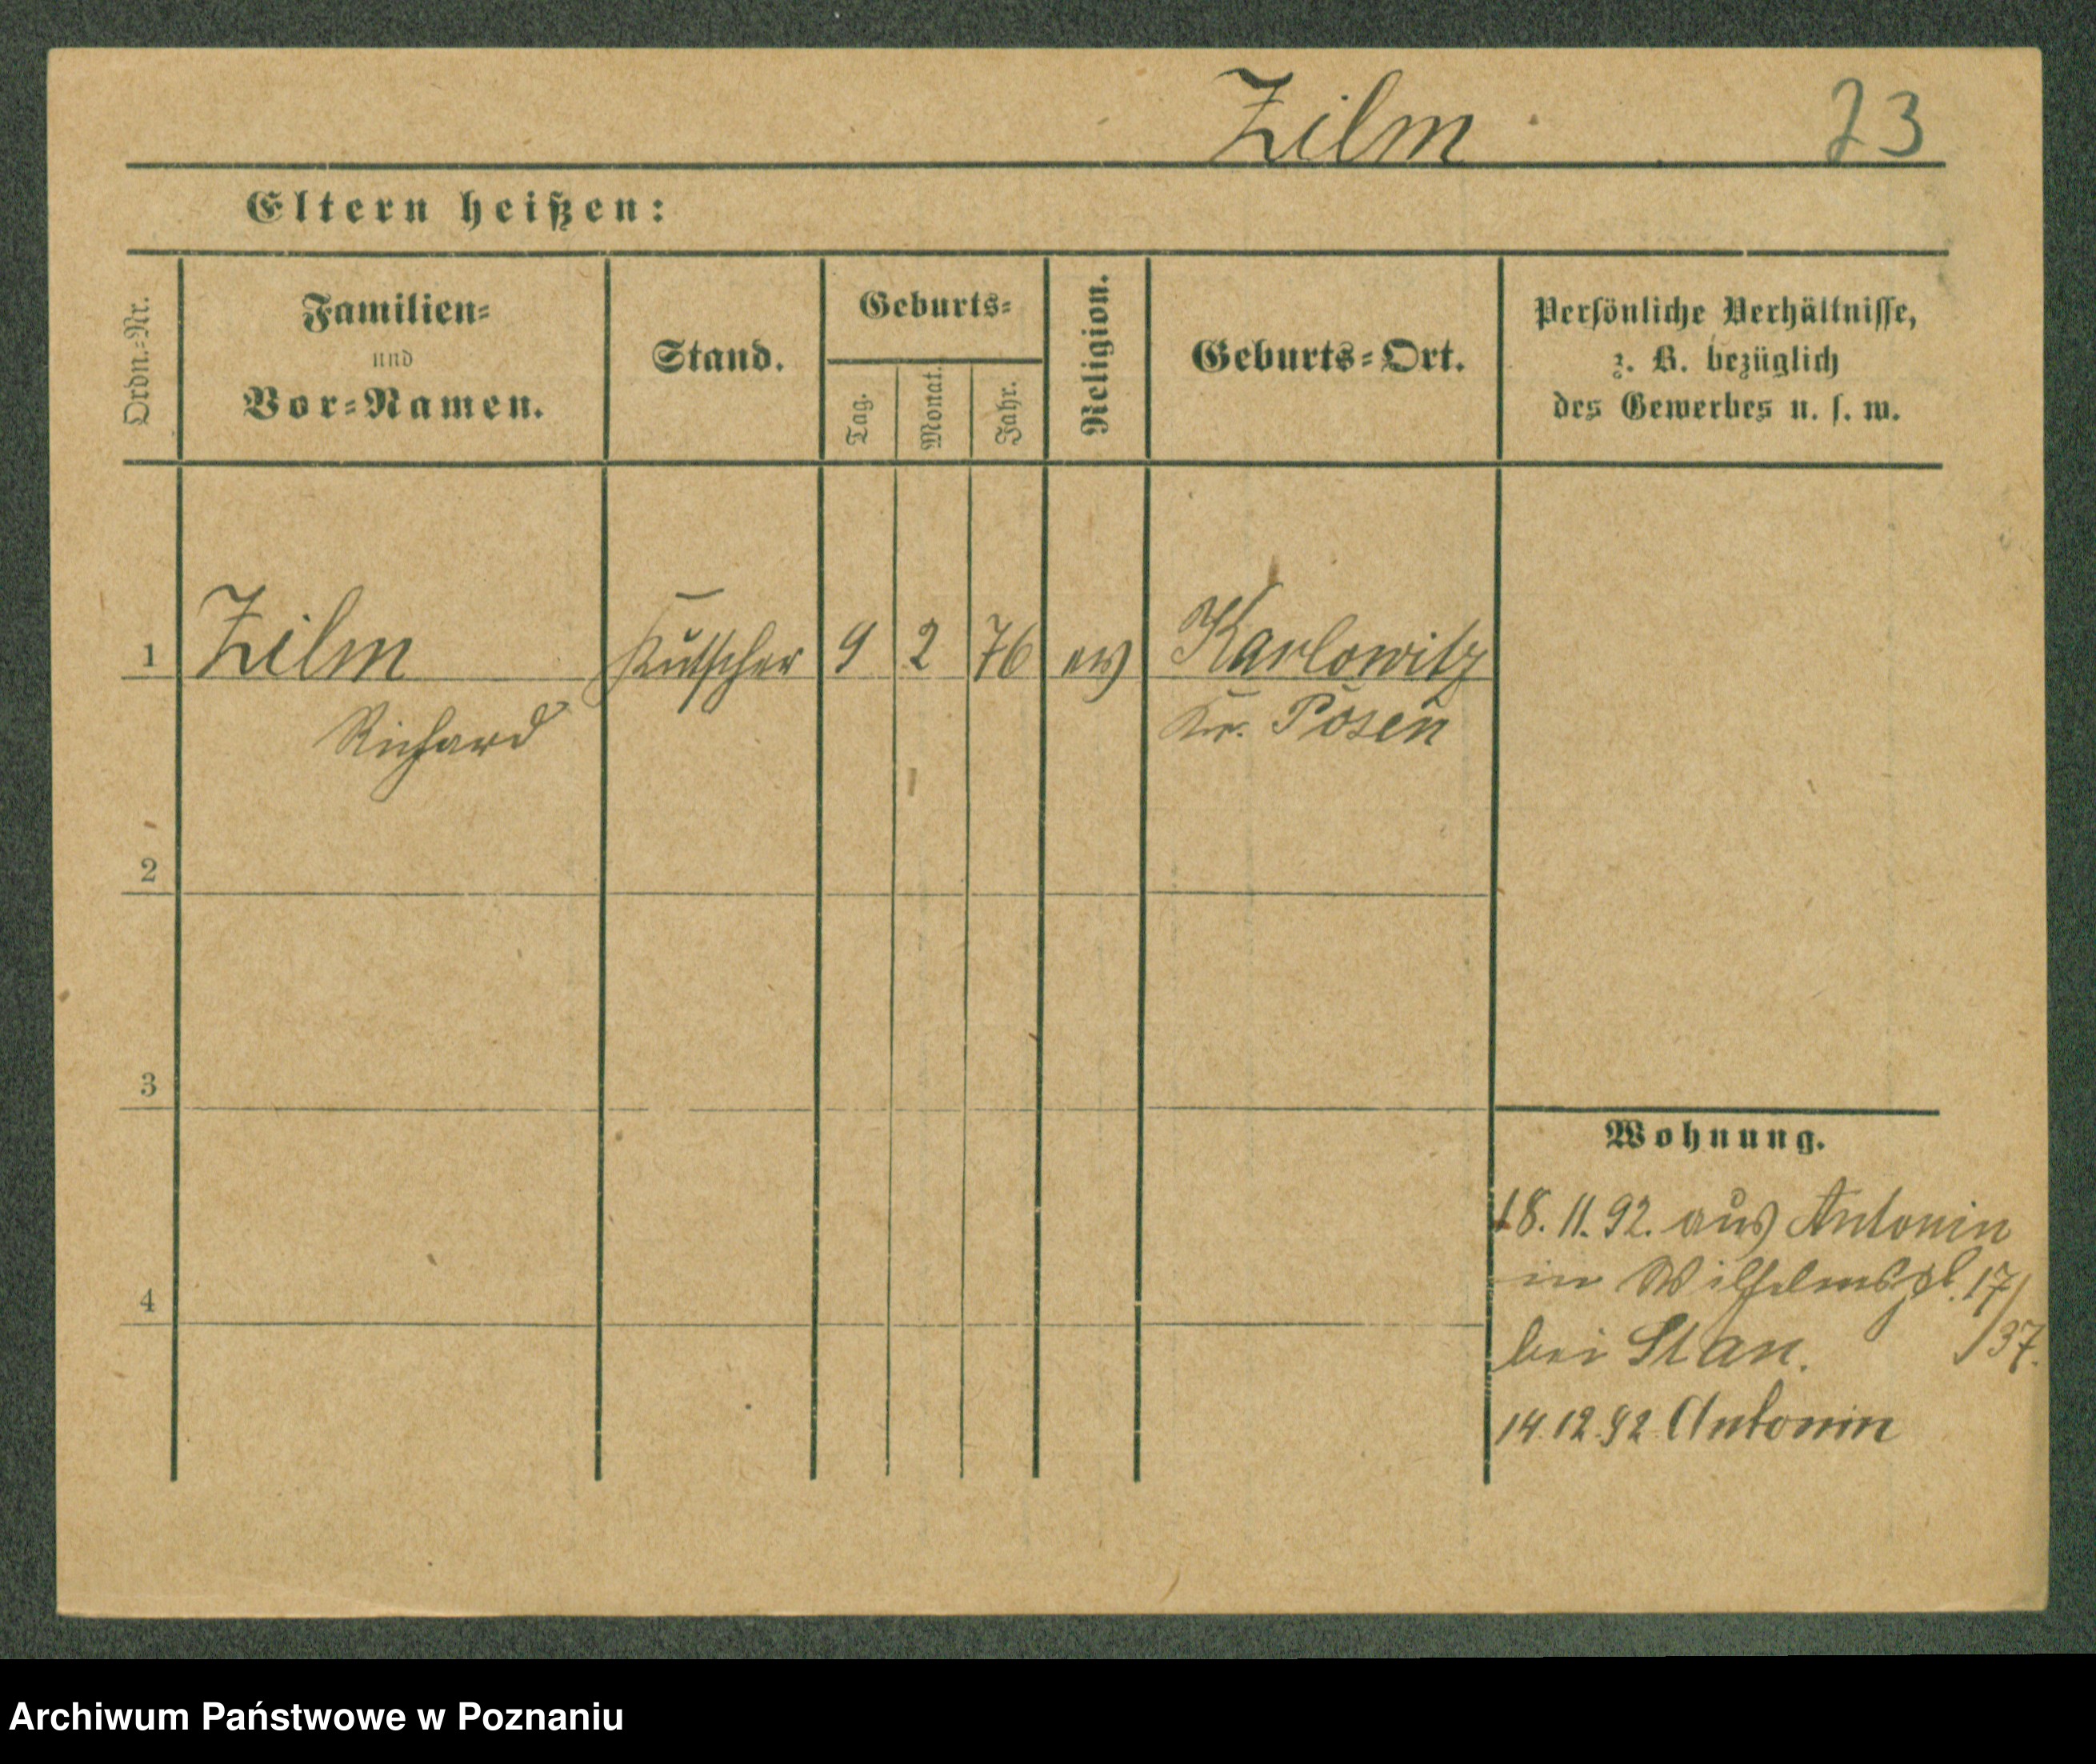 Zilm 23
Eltern heißen:
Ordn.-Nr.
Familien-
und
Vor-Namen.
Stand.
Geburts-
Tag.
Monat.
Jahr.
Religion.
Geburts-Ort.
Persönliche Verhältnisse,
z. B. bezüglich
des Gewerbes u. s. w.
1 Zilm Kutscher 9 2 76 ev Karlowitz
Richard Kr. Posen
2
3
Wohnung.
18. 11. 92. aus Antonin
in Wilhelmspl. 17/
bei Stan. /37.
4
14.12.92 Antonin
Archiwum Państwowe w Poznaniu